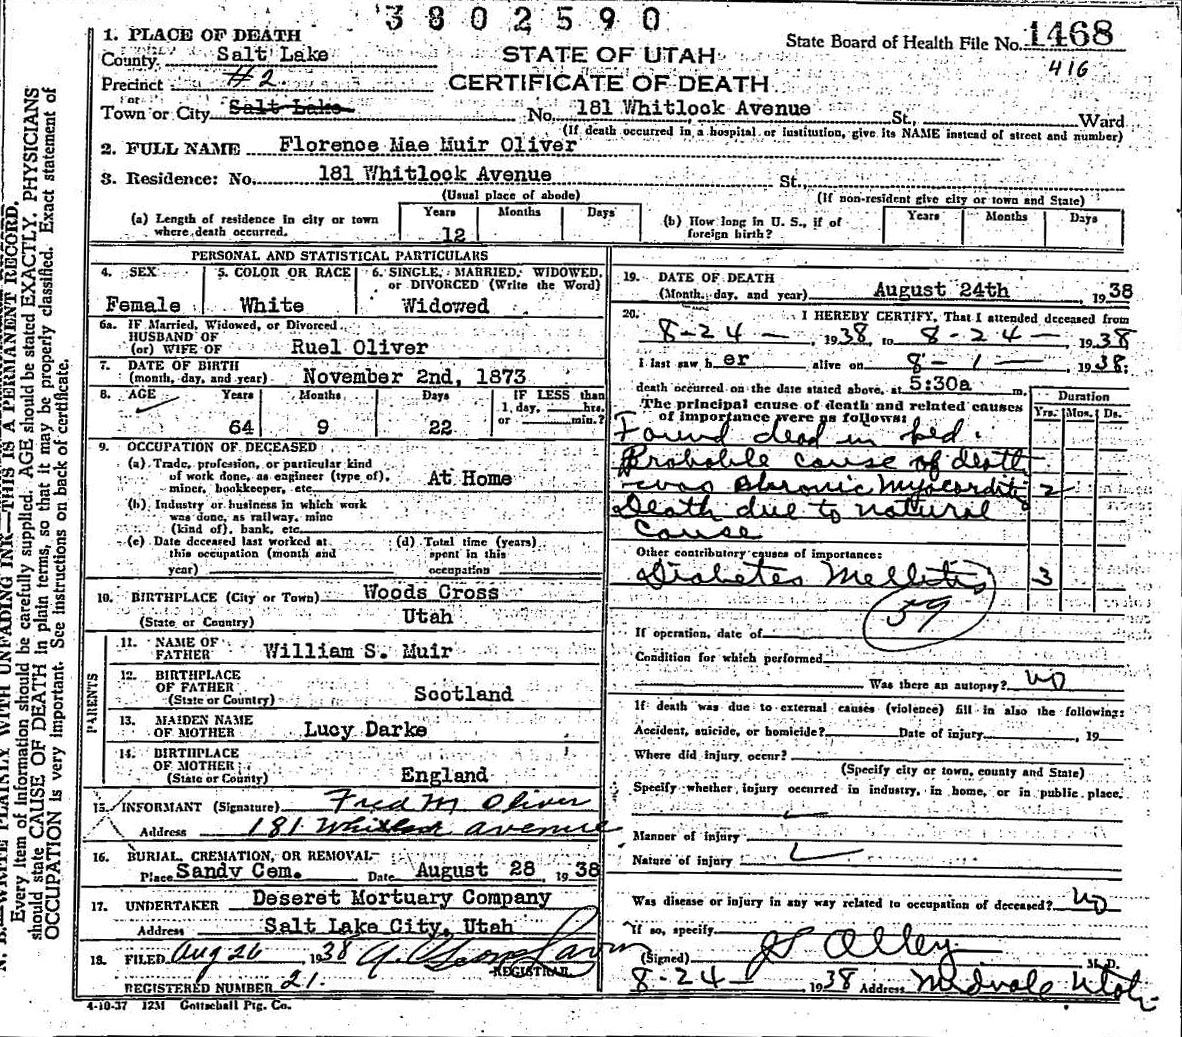 3802590
1. PLACE OF DEATH
County Salt Lake
STATE OF UTAH
State Board of Health File No. 1468
416
Precinct #2
CERTIFICATE OF DEATH
or
Town or City Salt Lake No. 181 Whitlock Avenue St., Ward
(If death occurred in a hospital or institution, give its NAME instead of street and number)
2. FULL NAME Florence Mae Muir Oliver
3. Residence: No. 181 Whitlock Avenue St.,
(Usual place of abode) (If non-resident give city or town and State)
(a) Length of residence in city or town where death occurred. Years 12 Months Days
(b) How long in U. S., if of foreign birth? Years Months Days
PERSONAL AND STATISTICAL PARTICULARS
4. SEX Female
5. COLOR OR RACE White
6. SINGLE, MARRIED, WIDOWED, or DIVORCED (Write the Word) Widowed
6a. IF Married, Widowed, or Divorced
HUSBAND OF
(or) WIFE OF Ruel Oliver
7. DATE OF BIRTH
(month, day, and year) November 2nd, 1873
8. AGE Years 64 Months 9 Days 22 IF LESS than 1 day, hrs. or min.?
9. OCCUPATION OF DECEASED
(a) Trade, profession, or particular kind
of work done, as engineer (type of),
miner, bookkeeper, etc. At Home
(b) Industry or business in which work
was done, as railway, mine
(kind of), bank, etc.
(c) Date deceased last worked at
this occupation (month and
year)
(d) Total time (years)
spent in this
occupation
10. BIRTHPLACE (City or Town) Woods Cross
(State or Country) Utah
PARENTS
11. NAME OF FATHER William S. Muir
12. BIRTHPLACE OF FATHER
(State or Country) Scotland
13. MAIDEN NAME OF MOTHER Lucy Darke
14. BIRTHPLACE OF MOTHER
(State or County) England
15. INFORMANT (Signature) Fred M Oliver
Address 181 Whitlock Avenue
16. BURIAL, CREMATION, OR REMOVAL
Place Sandy Cem. Date August 28, 1938
17. UNDERTAKER Deseret Mortuary Company
Address Salt Lake City, Utah
18. FILED Aug 26 1938
REGISTRAR
REGISTERED NUMBER 21.
4-10-37 12M Gottschall Ptg. Co.
19. DATE OF DEATH
(Month, day, and year) August 24th, 1938
20. I HEREBY CERTIFY, That I attended deceased from
8-24-, 1938, to 8-24-, 1938
I last saw her alive on 8-1-, 1938;
death occurred on the date stated above, at 5:30a m.
The principal cause of death and related causes
of importance were as follows:
Duration
Yrs. Mos. Ds.
Found dead in bed.
Probable cause of death
was chronic Myocarditis 2
Death due to natural
cause
Other contributory causes of importance:
Diabetes Mellitis 3
59
If operation, date of
Condition for which performed
Was there an autopsy? no
If death was due to external causes (violence) fill in also the following:
Accident, suicide, or homicide? Date of injury , 19
Where did injury occur?
(Specify city or town, county and State)
Specify whether injury occurred in industry, in home, or in public place.
Manner of injury
Nature of injury
Was disease or injury in any way related to occupation of deceased? no
If so, specify
(Signed) Alley M. D.
8-24- 1938 Address Midvale Utah
N. B.—WRITE PLAINLY WITH UNFADING INK—THIS IS A PERMANENT RECORD.
Every item of information should be carefully supplied. AGE should be stated EXACTLY. PHYSICIANS
should state CAUSE OF DEATH in plain terms, so that it may be properly classified. Exact statement of
OCCUPATION is very important. See instructions on back of certificate.